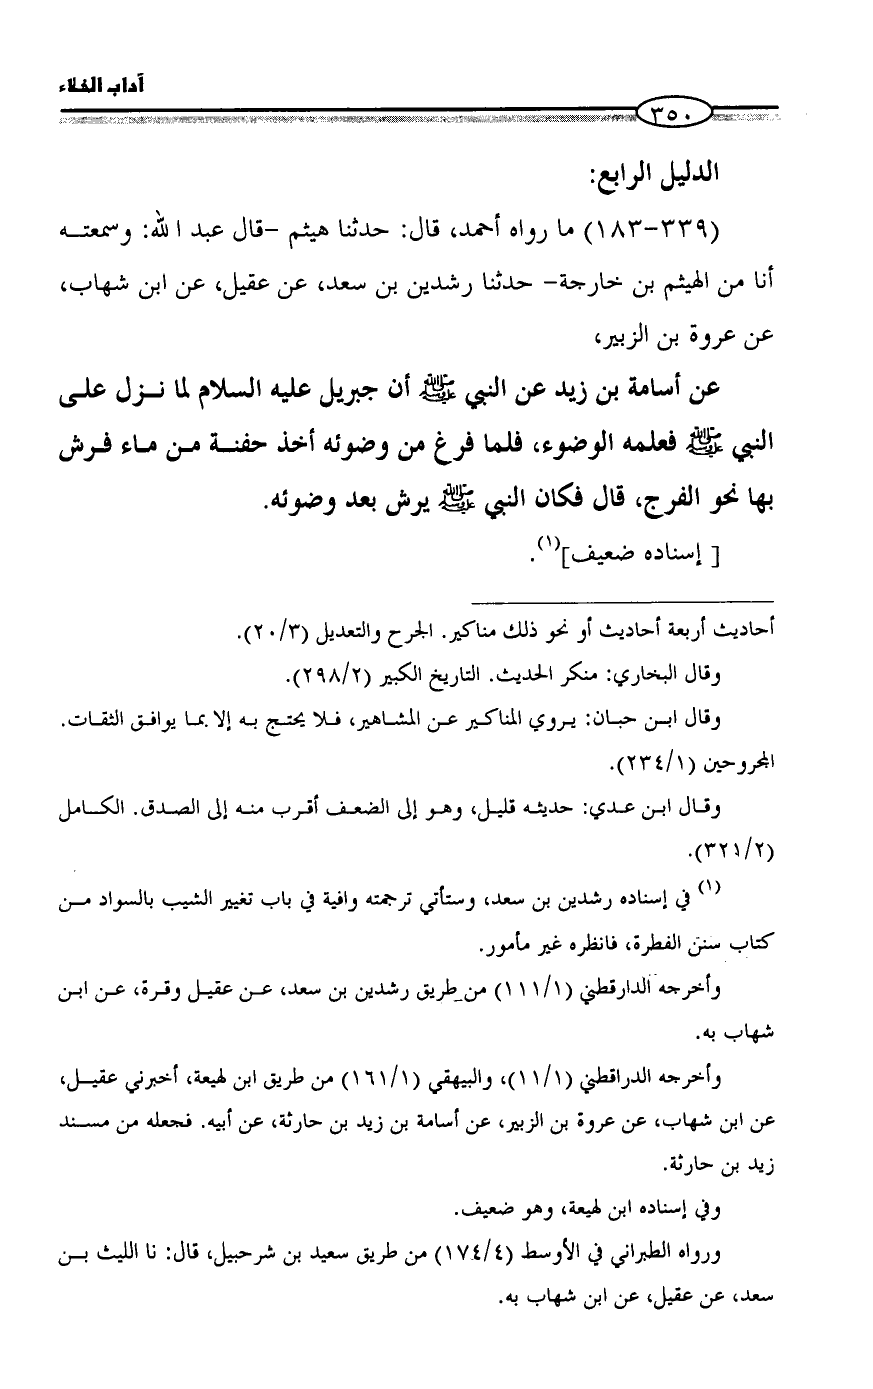 آداب الخلاء
٣٥٠
الدليل الرابع:
(٣٣٩-١٨٣) ما رواه أحمد، قال: حدثنا هيثم -قال عبد الله: وسمعته
أنا من الهيثم بن خارجة- حدثنا رشدين بن سعد، عن عقيل، عن ابن شهاب،
عن عروة بن الزبير،
عن أسامة بن زيد عن النبي ﷺ أن جبريل عليه السلام لما نزل على
النبي ﷺ فعلمه الوضوء، فلما فرغ من وضوئه أخذ حفنة من ماء فرش
بها نحو الفرج، قال فكان النبي ﷺ يرش بعد وضوئه.
[ إسناده ضعيف](١).
أحاديث أربعة أحاديث أو نحو ذلك مناكير. الجرح والتعديل (٢٠/٣).
وقال البخاري: منكر الحديث. التاريخ الكبير (٢٩٨/٢).
وقال ابن حبان: يروي المناكير عن المشاهير، فلا يحتج به إلا بما يوافق الثقات.
المجروحين (٢٣٤/١).
وقال ابن عدي: حديثه قليل، وهو إلى الضعف أقرب منه إلى الصدق. الكامل
(٣٢١/٢).
(١) في إسناده رشدين بن سعد، وستأتي ترجمته وافية في باب تغيير الشيب بالسواد من
كتاب سنن الفطرة، فانظره غير مأمور.
وأخرجه الدارقطني (١١١/١) من طريق رشدين بن سعد، عن عقيل وقرة، عن ابن
شهاب به.
وأخرجه الدراقطني (١١/١)، والبيهقي (١٦١/١) من طريق ابن لهيعة، أخبرني عقيل،
عن ابن شهاب، عن عروة بن الزبير، عن أسامة بن زيد بن حارثة، عن أبيه. فجعله من مسند
زيد بن حارثة.
وفي إسناده ابن لهيعة، وهو ضعيف.
ورواه الطبراني في الأوسط (١٧٤/٤) من طريق سعيد بن شرحبيل، قال: نا الليث بن
سعد، عن عقيل، عن ابن شهاب به.